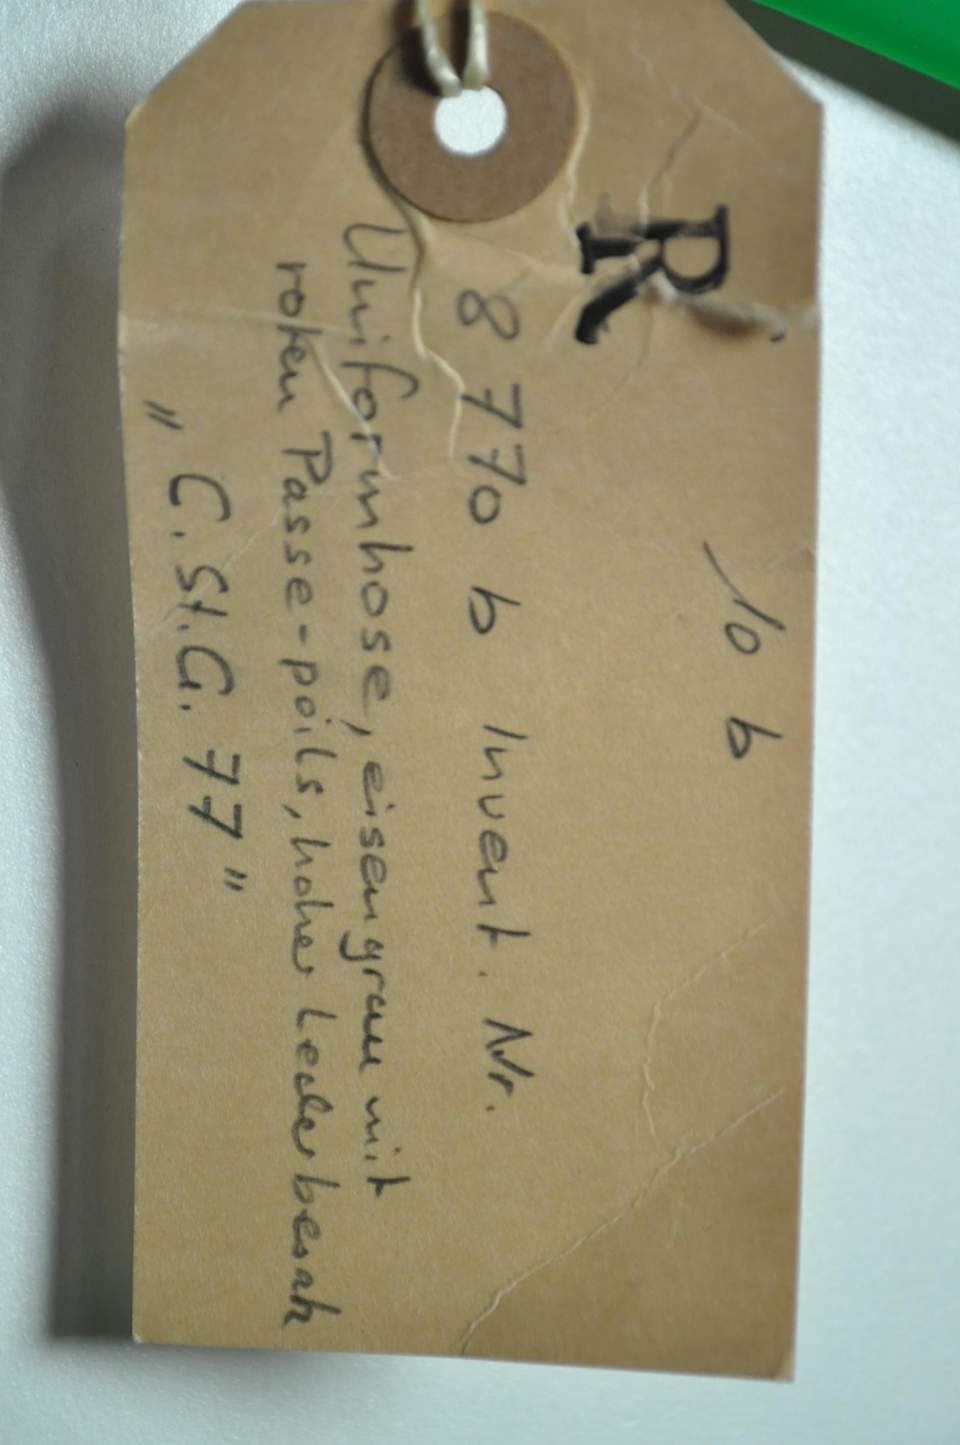 R
10 b
8 770 b Invent. Nr.
Uniformhose, eisengrau mit
roten Passe-poils, hoher Lederbesatz
"C.St.G. 77"